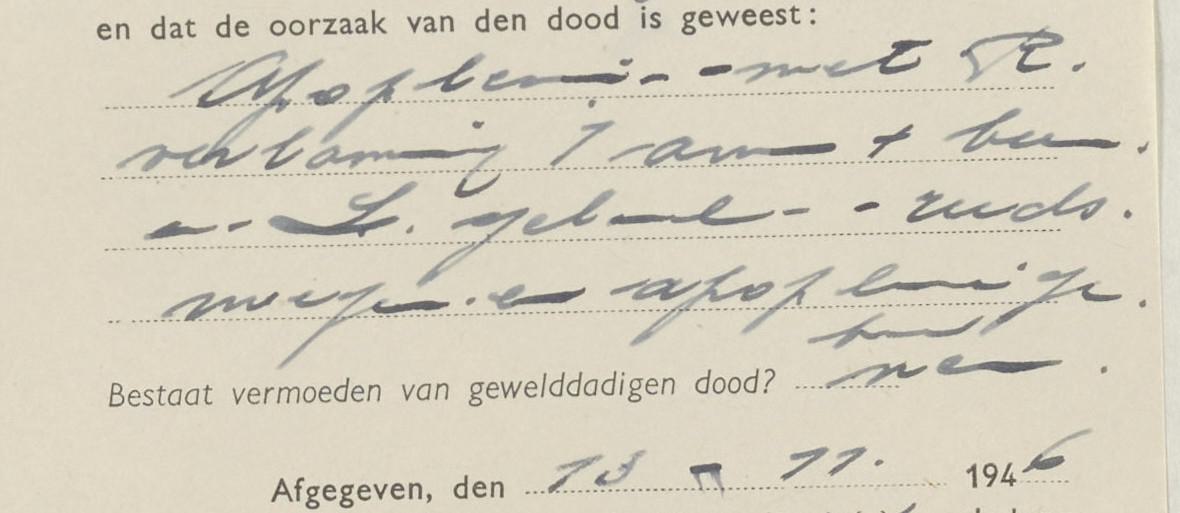 en dat de oorzaak van den dood is geweest:
Apoplexie - met R.
verlamming arm + been.
en L. gelaat - reeds
apoplexie ge-
had
Bestaat vermoeden van gewelddadigen dood? neen.
Afgegeven, den 13 - 11. 1946